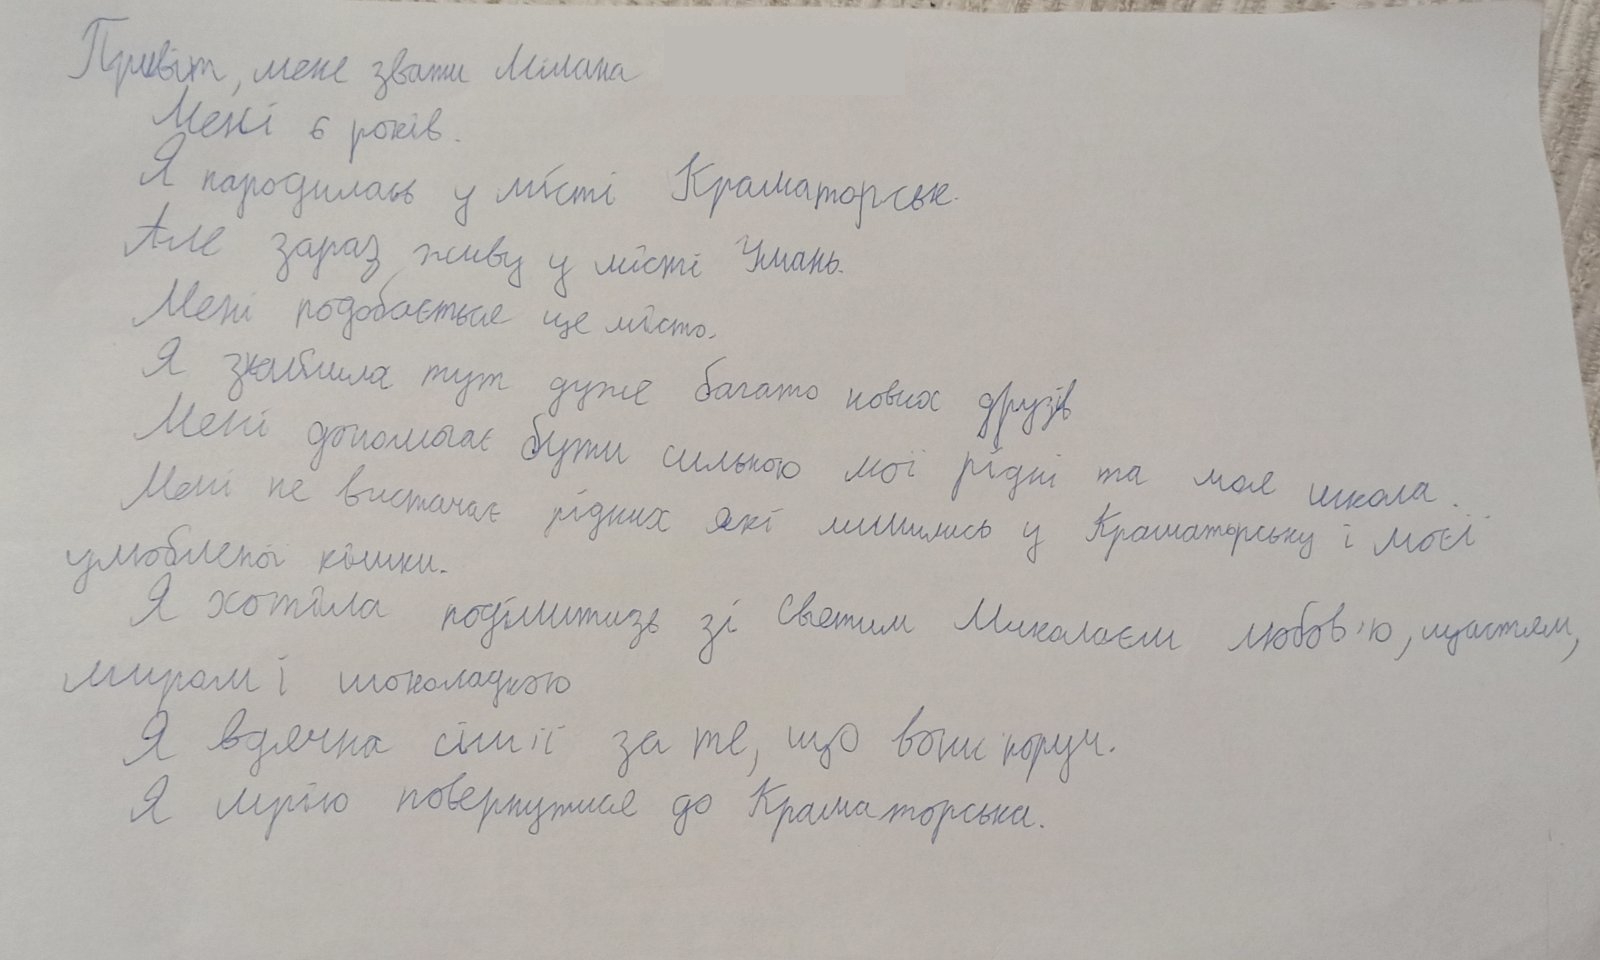 Привіт, мене звати Мілана
Мені 6 років.
Я народилась у місті Краматорськ.
Але зараз живу у місті Умань.
Мені подобається це місто.
Я знайшла тут дуже багато нових друзів
Мені допомагає бути сильною мої рідні та моя школа.
Мені не вистачає рідних які лишились у Краматорську і моєї
улюбленої кішки.
Я хотіла поділитизь зі Святим Миколаєм любов'ю, щастям,
миром і шоколадкою
Я вдячна сімії за те, що вони поруч.
Я мрію повернутися до Краматорська.